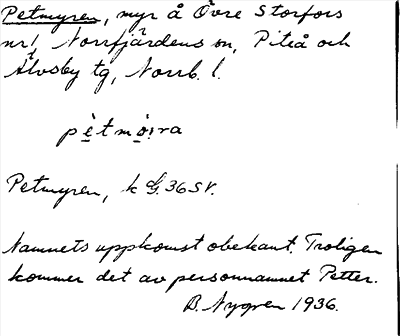 Petmyren, myr å Övre Storfors
nr 1, Norrfjärdens sn, Piteå och
Älvsby tg, Norrb. l.
pètmọ:ra
Petmyren, k 36 SV.
Namnets uppkomst obekant. Troligen
kommer det av personnamnet Petter.
B. Nygren 1936.